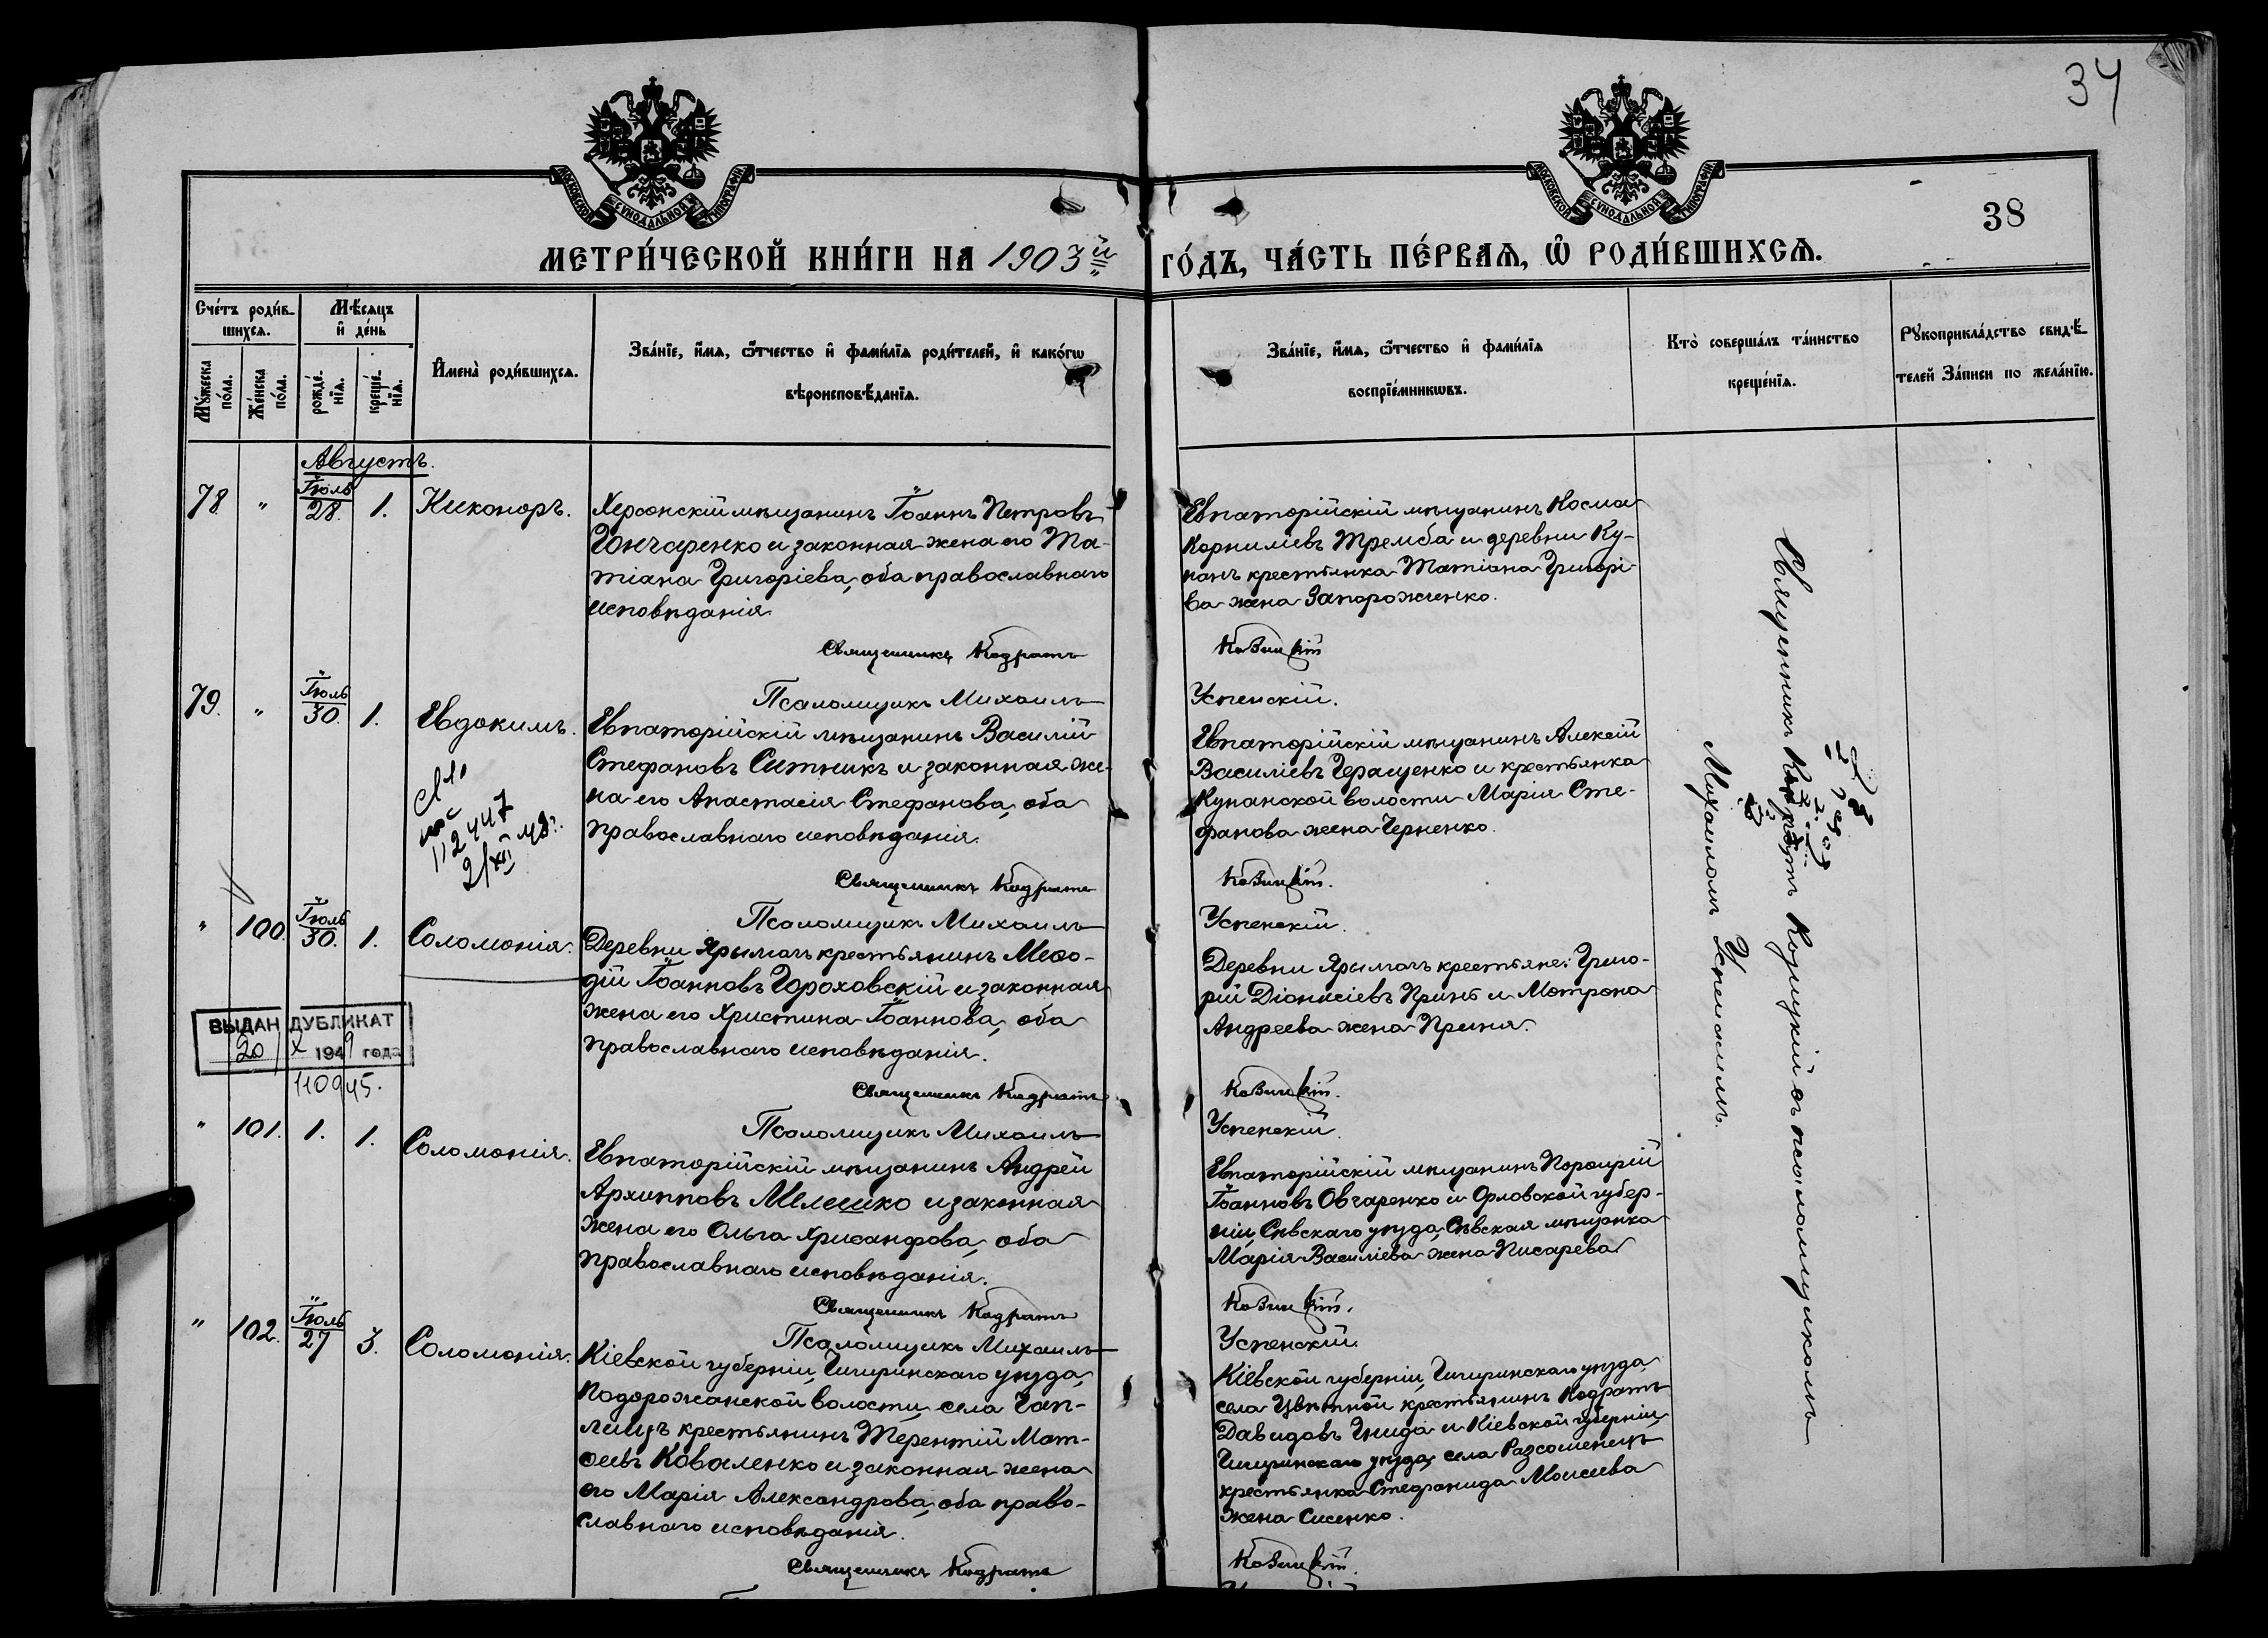 34
МОСКОВСКОЙ СУНОДАЛЬНОЙ ТИПОГРАФІИ
МОСКОВСКОЙ СУНОДАЛЬНОЙ ТИПОГРАФІИ
38
МЕТРИ́ЧЕСКОЙ КНИ́ГИ НА 1903й
ГО́ДЪ, ЧА́СТЬ ПЕ́РВАѦ, Ѡ҆ РОДИ́ВШИХСѦ.
Сче́тъ роди́в-
шихсѧ.
Мꙋ́жеска
по́ла.
Же́нска
по́ла.
Мѣ́сѧцъ
и҆ де́нь
рожде́-
нїѧ.
креще́-
нїѧ.
И҆мена̀ роди́вшихсѧ.
Зва́нїе, и҆́мѧ, ѻ҆́тчество и҆ фами́лїѧ роди́телей, и҆ како́гѡ
вѣроисповѣ́данїѧ.
Зва́нїе, и҆́мѧ, ѻ҆́тчество и҆ фами́лїѧ
воспрїе́мникѡвъ.
Кто̀ соверша́лъ та́инство
креще́нїѧ.
Рꙋкоприкла́дство свидѣ́-
телей За́писи по жела́нїю.
Августъ.
78 " Іюль 28. 1. Никоноръ.
Херсонскій мѣщанинъ Іоаннъ Петровъ
Гончаренко и законная жена его Та-
тіана Григоріева, оба православнаго
исповѣданія
Священникъ Кодратъ
Псаломщикъ Михаилъ
Евпаторійскій мѣщанинъ Косма
Корниліевъ Тремба и деревни Ку-
нанъ крестьянка Татіана Григорі-
ева жена Запорожченко.
Козицкій
Успенскій.
79. " Іюль 30. 1. Евдокимъ.
112447
2/XII 48г.
Евпаторійскій мѣщанинъ Василій
Стефановъ Ситникъ и законная же-
на его Анастасія Стефанова, оба
православнаго исповѣданія.
Священникъ Кодратъ
Псаломщикъ Михаилъ
Евпаторійскій мѣщанинъ Алексій
Василіевъ Геращенко и крестьянка
Кунанской волости Марія Сте-
фанова жена Черненко.
Козицкій.
Успенскій.
" 100. Іюль 30. 1. Соломонія.
ВЫДАН ДУБЛИКАТ
20/X 1949 года
110945.
Деревни Ярымоль крестьянинъ Меѳо-
дій Іоанновъ Гороховскій и законная
жена его Христина Іоаннова, оба
православнаго исповѣданія.
Священникъ Кодратъ
Псаломщикъ Михаилъ
Деревни Ярымоль крестьяне: Григо-
рій Діонисіевъ Принь и Мотрона
Андреева жена Приня.
Козицкій.
Успенскій.
" 101. 1. 1. Соломонія.
Евпаторійскій мѣщанинъ Андрей
Архипповъ Мелешко и законная
жена его Ольга Хрисанфова, оба
православнаго исповѣданія.
Священникъ Кодратъ
Псаломщикъ Михаилъ
Евпаторійскій мѣщанинъ Порфирій
Іоанновъ Овчаренко и Орловской губер-
ніи, Сѣвскаго уѣзда, Сѣвская мѣщанка
Марія Василіева жена Писарева
Козицкій.
Успенскій.
" 102. Іюль 27 3. Соломонія.
Кіевской губерніи, Чигиринскаго уѣзда,
Подорожанской волости, села Чап-
лищъ крестьянинъ Терентій Мат-
ѳеевъ Коваленко и законная жена
его Марія Александрова, оба право-
славнаго исповѣданія.
Священникъ Кодратъ
Кіевской губерніи, Чигиринскаго уѣзда
села Цвѣтной крестьянинъ Кодратъ
Давидовъ Гнида и Кіевской губерніи
Чигиринскаго уѣзда, села Разсошенецъ
крестьянка Стефанида Моисеева
жена Сисенко.
Козицкій.
Священникъ Кодратъ Козицкій съ псаломщикомъ
Михаиломъ Успенскимъ.